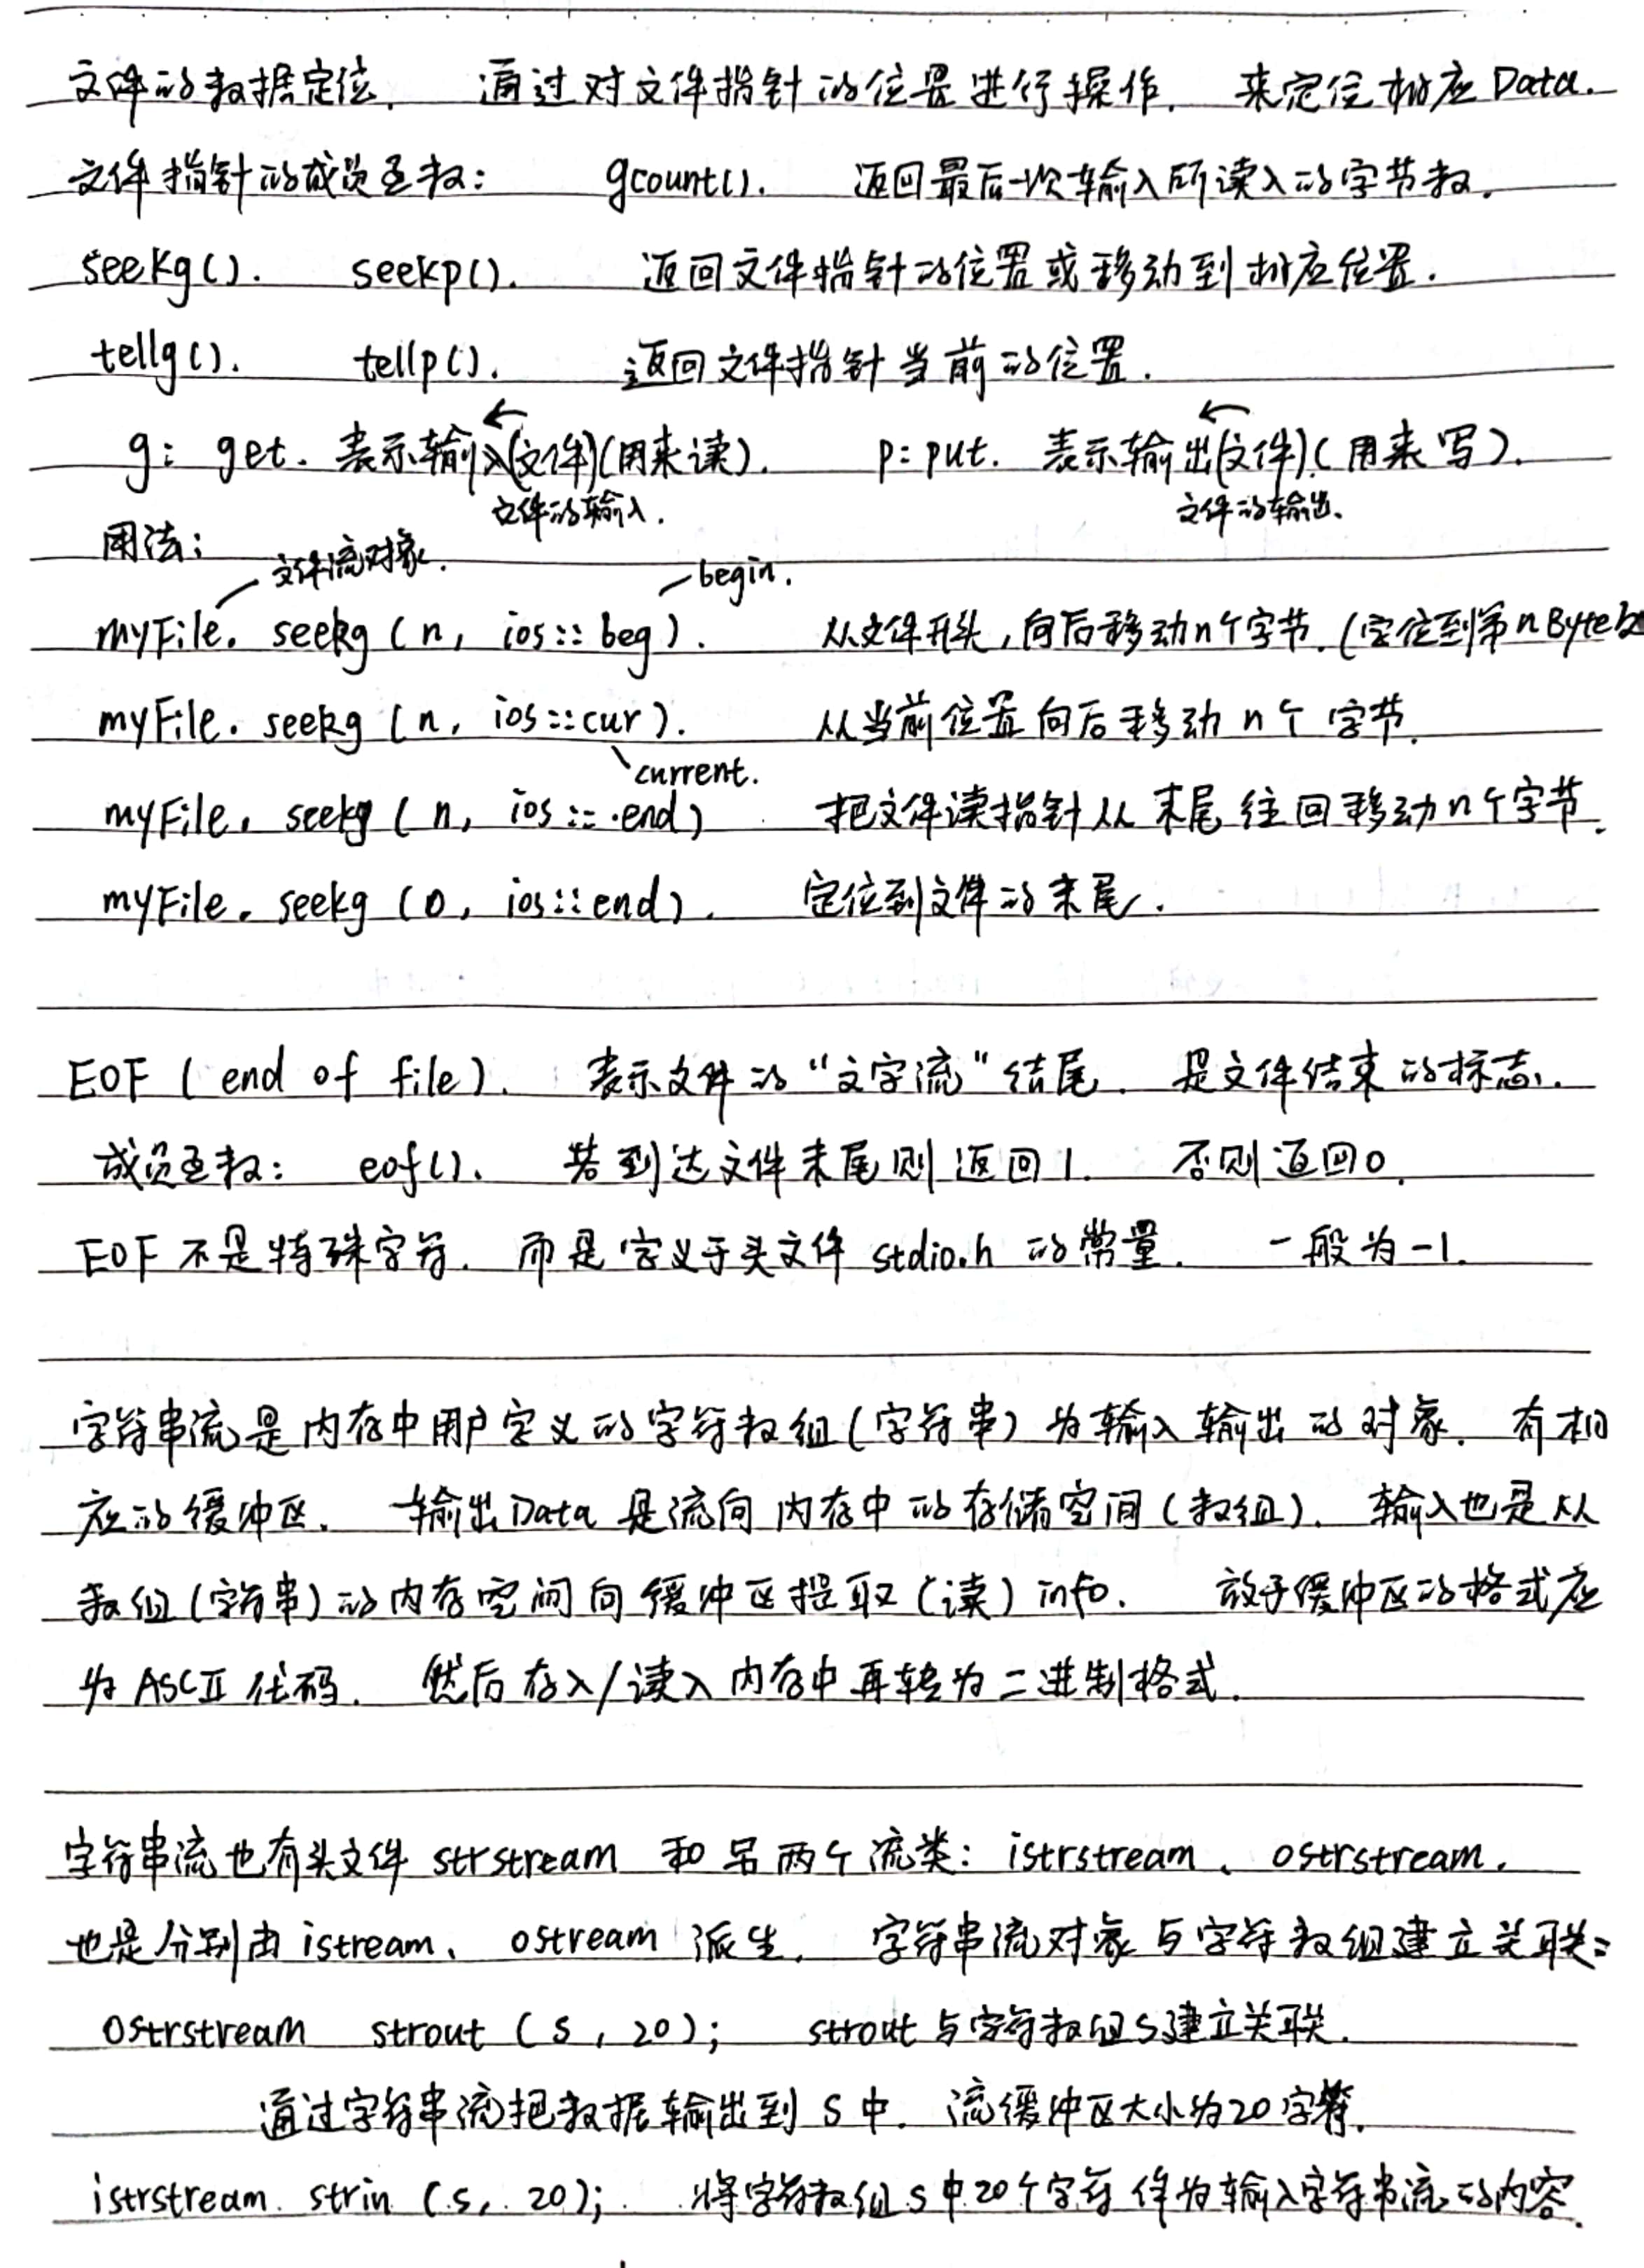 文件的数据定位. 通过对文件指针的位置进行操作. 来定位相应Data.
文件指针的成员函数: gcount(). 返回最后一次输入所读入的字节数.
seekg(). seekp(). 返回文件指针的位置或移动到相应位置.
tellg(). tellp(). 返回文件指针当前的位置.
g: get. 表示输入(文件)(用来读). p: put. 表示输出(文件)(用来写).
文件的输入. 文件的输出.
用法:
文件流对象. begin.
myFile. seekg (n, ios::beg). 从文件开头,向后移动n个字节.(定位到第nByte处
myFile. seekg (n, ios::cur). 从当前位置向后移动n个字节.
current.
myFile. seekg (n, ios::end) 把文件读指针从末尾往回移动n个字节.
myFile. seekg (0, ios::end). 定位到文件的末尾.
EOF (end of file). 表示文件的“文字流”结尾. 是文件结束的标志.
成员函数: eof(). 若到达文件末尾则返回1. 否则返回0.
EOF不是特殊字符. 而是定义于头文件 stdio.h 的常量. 一般为-1.
字符串流是内存中用户定义的字符数组(字符串)为输入输出的对象. 有相
应的缓冲区. 输出Data是流向内存中的存储空间(数组). 输入也是从
数组(字符串)的内存空间向缓冲区提取(读)info. 放于缓冲区的格式应
为ASCII代码. 然后存入/读入内存中再转为二进制格式.
字符串流也有头文件 strstream 和另两个流类: istrstream、ostrstream.
也是分别由 istream、ostream 派生. 字符串流对象与字符数组建立关联:
ostrstream strout (s, 20); strout与字符数组s建立关联.
通过字符串流把数据输出到s中. 流缓冲区大小为20字符.
istrstream strin (s, 20); 将字符数组s中20个字符作为输入字符串流的内容.